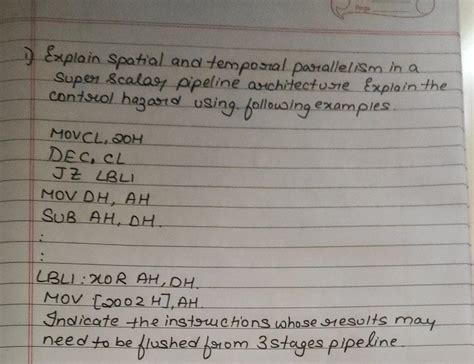 Page
i) Explain Spatial and temporal parallelism in a
Super Scalar pipeline architecture Explain the
control hazard using following examples.
MOVCL, 20H
DEC, CL
JZ LBLI
MOV DH, AH
SUB AH, DH.
:
:
LBLI : XOR AH, DH.
MOV [2002 H], AH.
Indicate the instructions whose results may
need to be flushed from 3 stages pipeline.